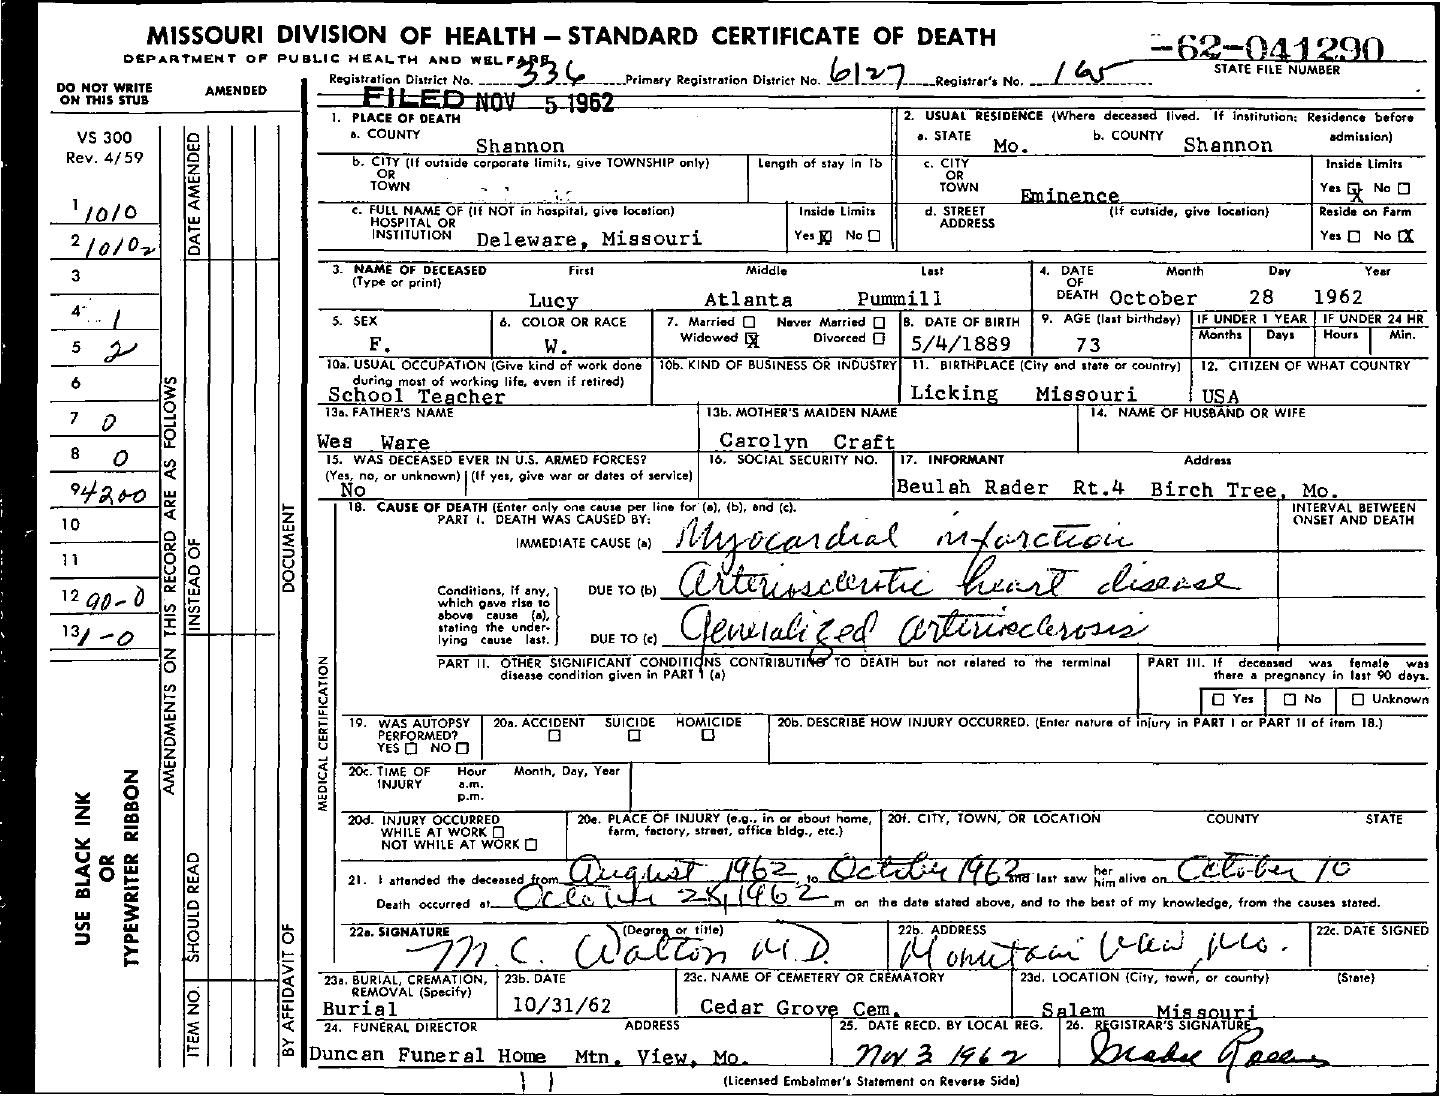 MISSOURI DIVISION OF HEALTH — STANDARD CERTIFICATE OF DEATH
-62-041290
DEPARTMENT OF PUBLIC HEALTH AND WELFARE
STATE FILE NUMBER
Registration District No. 336 Primary Registration District No. 6127 Registrar's No. 165
FILED NOV 5 1962
DO NOT WRITE ON THIS STUB
AMENDED
VS 300
Rev. 4/59
1 1010
2 10102
3
4 1
5 2
6
7 0
8 0
9 4200
10
11
12 90-0
13 1-0
USE BLACK INK
OR
TYPEWRITER RIBBON
AMENDMENTS ON THIS RECORD ARE AS FOLLOWS
DATE AMENDED
INSTEAD OF
SHOULD READ
ITEM NO.
DOCUMENT
BY AFFIDAVIT OF
MEDICAL CERTIFICATION
1. PLACE OF DEATH
a. COUNTY Shannon
2. USUAL RESIDENCE (Where deceased lived. If institution: Residence before admission)
a. STATE Mo. b. COUNTY Shannon
b. CITY (If outside corporate limits, give TOWNSHIP only) OR TOWN
Length of stay in 1b
c. CITY OR TOWN Eminence
Inside Limits
Yes X No
c. FULL NAME OF (If NOT in hospital, give location) HOSPITAL OR INSTITUTION Deleware, Missouri
Inside Limits
Yes X No
d. STREET ADDRESS (If outside, give location)
Reside on Farm
Yes No X
3. NAME OF DECEASED (Type or print) First Middle Last
Lucy Atlanta Pummill
4. DATE OF DEATH Month Day Year
October 28 1962
5. SEX F.
6. COLOR OR RACE W.
7. Married Never Married Widowed X Divorced
8. DATE OF BIRTH 5/4/1889
9. AGE (last birthday) 73
IF UNDER 1 YEAR Months Days
IF UNDER 24 HR Hours Min.
10a. USUAL OCCUPATION (Give kind of work done during most of working life, even if retired)
School Teacher
10b. KIND OF BUSINESS OR INDUSTRY
11. BIRTHPLACE (City and state or country)
Licking Missouri
12. CITIZEN OF WHAT COUNTRY
USA
13a. FATHER'S NAME
Wes Ware
13b. MOTHER'S MAIDEN NAME
Carolyn Craft
14. NAME OF HUSBAND OR WIFE
15. WAS DECEASED EVER IN U.S. ARMED FORCES?
(Yes, no, or unknown) (If yes, give war or dates of service)
No
16. SOCIAL SECURITY NO.
17. INFORMANT Address
Beulah Rader Rt.4 Birch Tree, Mo.
18. CAUSE OF DEATH (Enter only one cause per line for (a), (b), and (c).
PART I. DEATH WAS CAUSED BY:
INTERVAL BETWEEN ONSET AND DEATH
IMMEDIATE CAUSE (a) Myocardial infarction
Conditions, if any, which gave rise to above cause (a), stating the underlying cause last.
DUE TO (b) Arteriosclerotic heart disease
DUE TO (c) Generalized arteriosclerosis
PART II. OTHER SIGNIFICANT CONDITIONS CONTRIBUTING TO DEATH but not related to the terminal disease condition given in PART I (a)
PART III. If deceased was female was there a pregnancy in last 90 days.
Yes No Unknown
19. WAS AUTOPSY PERFORMED? YES NO
20a. ACCIDENT SUICIDE HOMICIDE
20b. DESCRIBE HOW INJURY OCCURRED. (Enter nature of injury in PART I or PART II of item 18.)
20c. TIME OF INJURY Hour a.m. p.m. Month, Day, Year
20d. INJURY OCCURRED WHILE AT WORK NOT WHILE AT WORK
20e. PLACE OF INJURY (e.g., in or about home, farm, factory, street, office bldg., etc.)
20f. CITY, TOWN, OR LOCATION COUNTY STATE
21. I attended the deceased from August 1962 to October 1962 and last saw her him alive on October 10
Death occurred at October 28, 1962 m on the date stated above, and to the best of my knowledge, from the causes stated.
22a. SIGNATURE (Degree or title)
M. C. Walton M.D.
22b. ADDRESS
Mountain View, Mo.
22c. DATE SIGNED
23a. BURIAL, CREMATION, REMOVAL (Specify)
Burial
23b. DATE
10/31/62
23c. NAME OF CEMETERY OR CREMATORY
Cedar Grove Cem.
23d. LOCATION (City, town, or county) (State)
Salem Missouri
24. FUNERAL DIRECTOR ADDRESS
Duncan Funeral Home Mtn. View, Mo.
25. DATE RECD. BY LOCAL REG.
Nov 3 1962
26. REGISTRAR'S SIGNATURE
(Licensed Embalmer's Statement on Reverse Side)